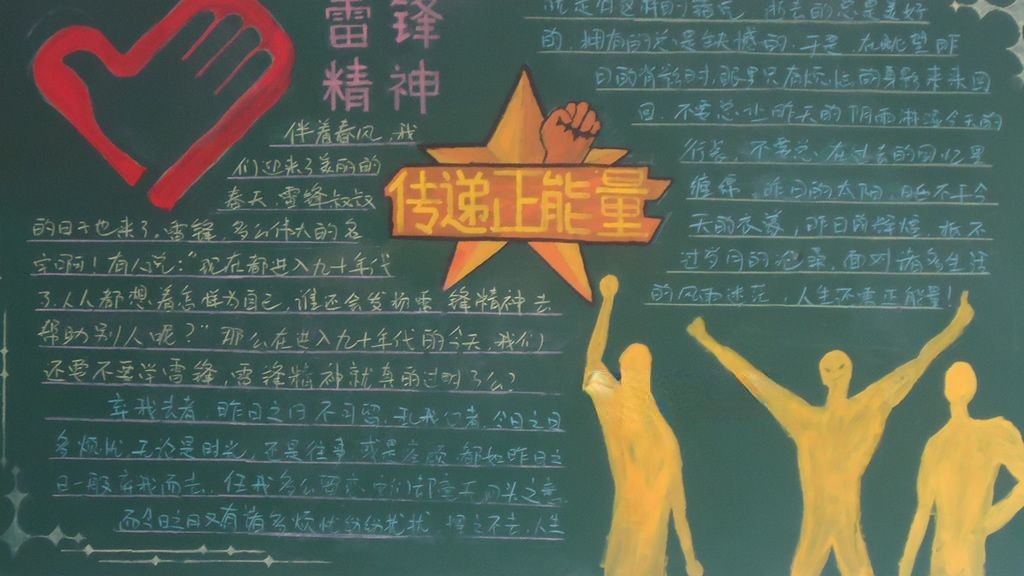 雷锋
精神
伴着春风，我
们迎来了美丽的
春天，雷锋叔叔
的日子也来了，雷锋，多么伟大的名
字啊！有人说：“现在都进入九十年代
了，人人都想着怎样为自己，谁还会发扬雷锋精神去
帮助别人呢？”那么在进入九十年代的今天，我们
还要不要学雷锋，雷锋精神就真的过时了么？
弃我去者，昨日之日不可留，乱我心者，今日之日
多烦忧，无论是时光，不是往事，或是
日一般弃我而去，任我多么留恋，
而今日之日又有诸多烦忧纷纷扰扰，挥之不去，人生
传递正能量
总是有这样的 逝去的总是美好
的，拥有的总是缺憾的，于是，在眺望昨
日的背影时，眼里只有 的身影来来回
回，不要总让昨天的阴雨淋湿今天的
行装，不要总在过去的回忆里
缠绵，昨日的太阳，晒不干今
天的衣裳，昨日的 抵不
过岁月的沧桑，面对诸多生活
的风雨迷茫，人生还需正能量！